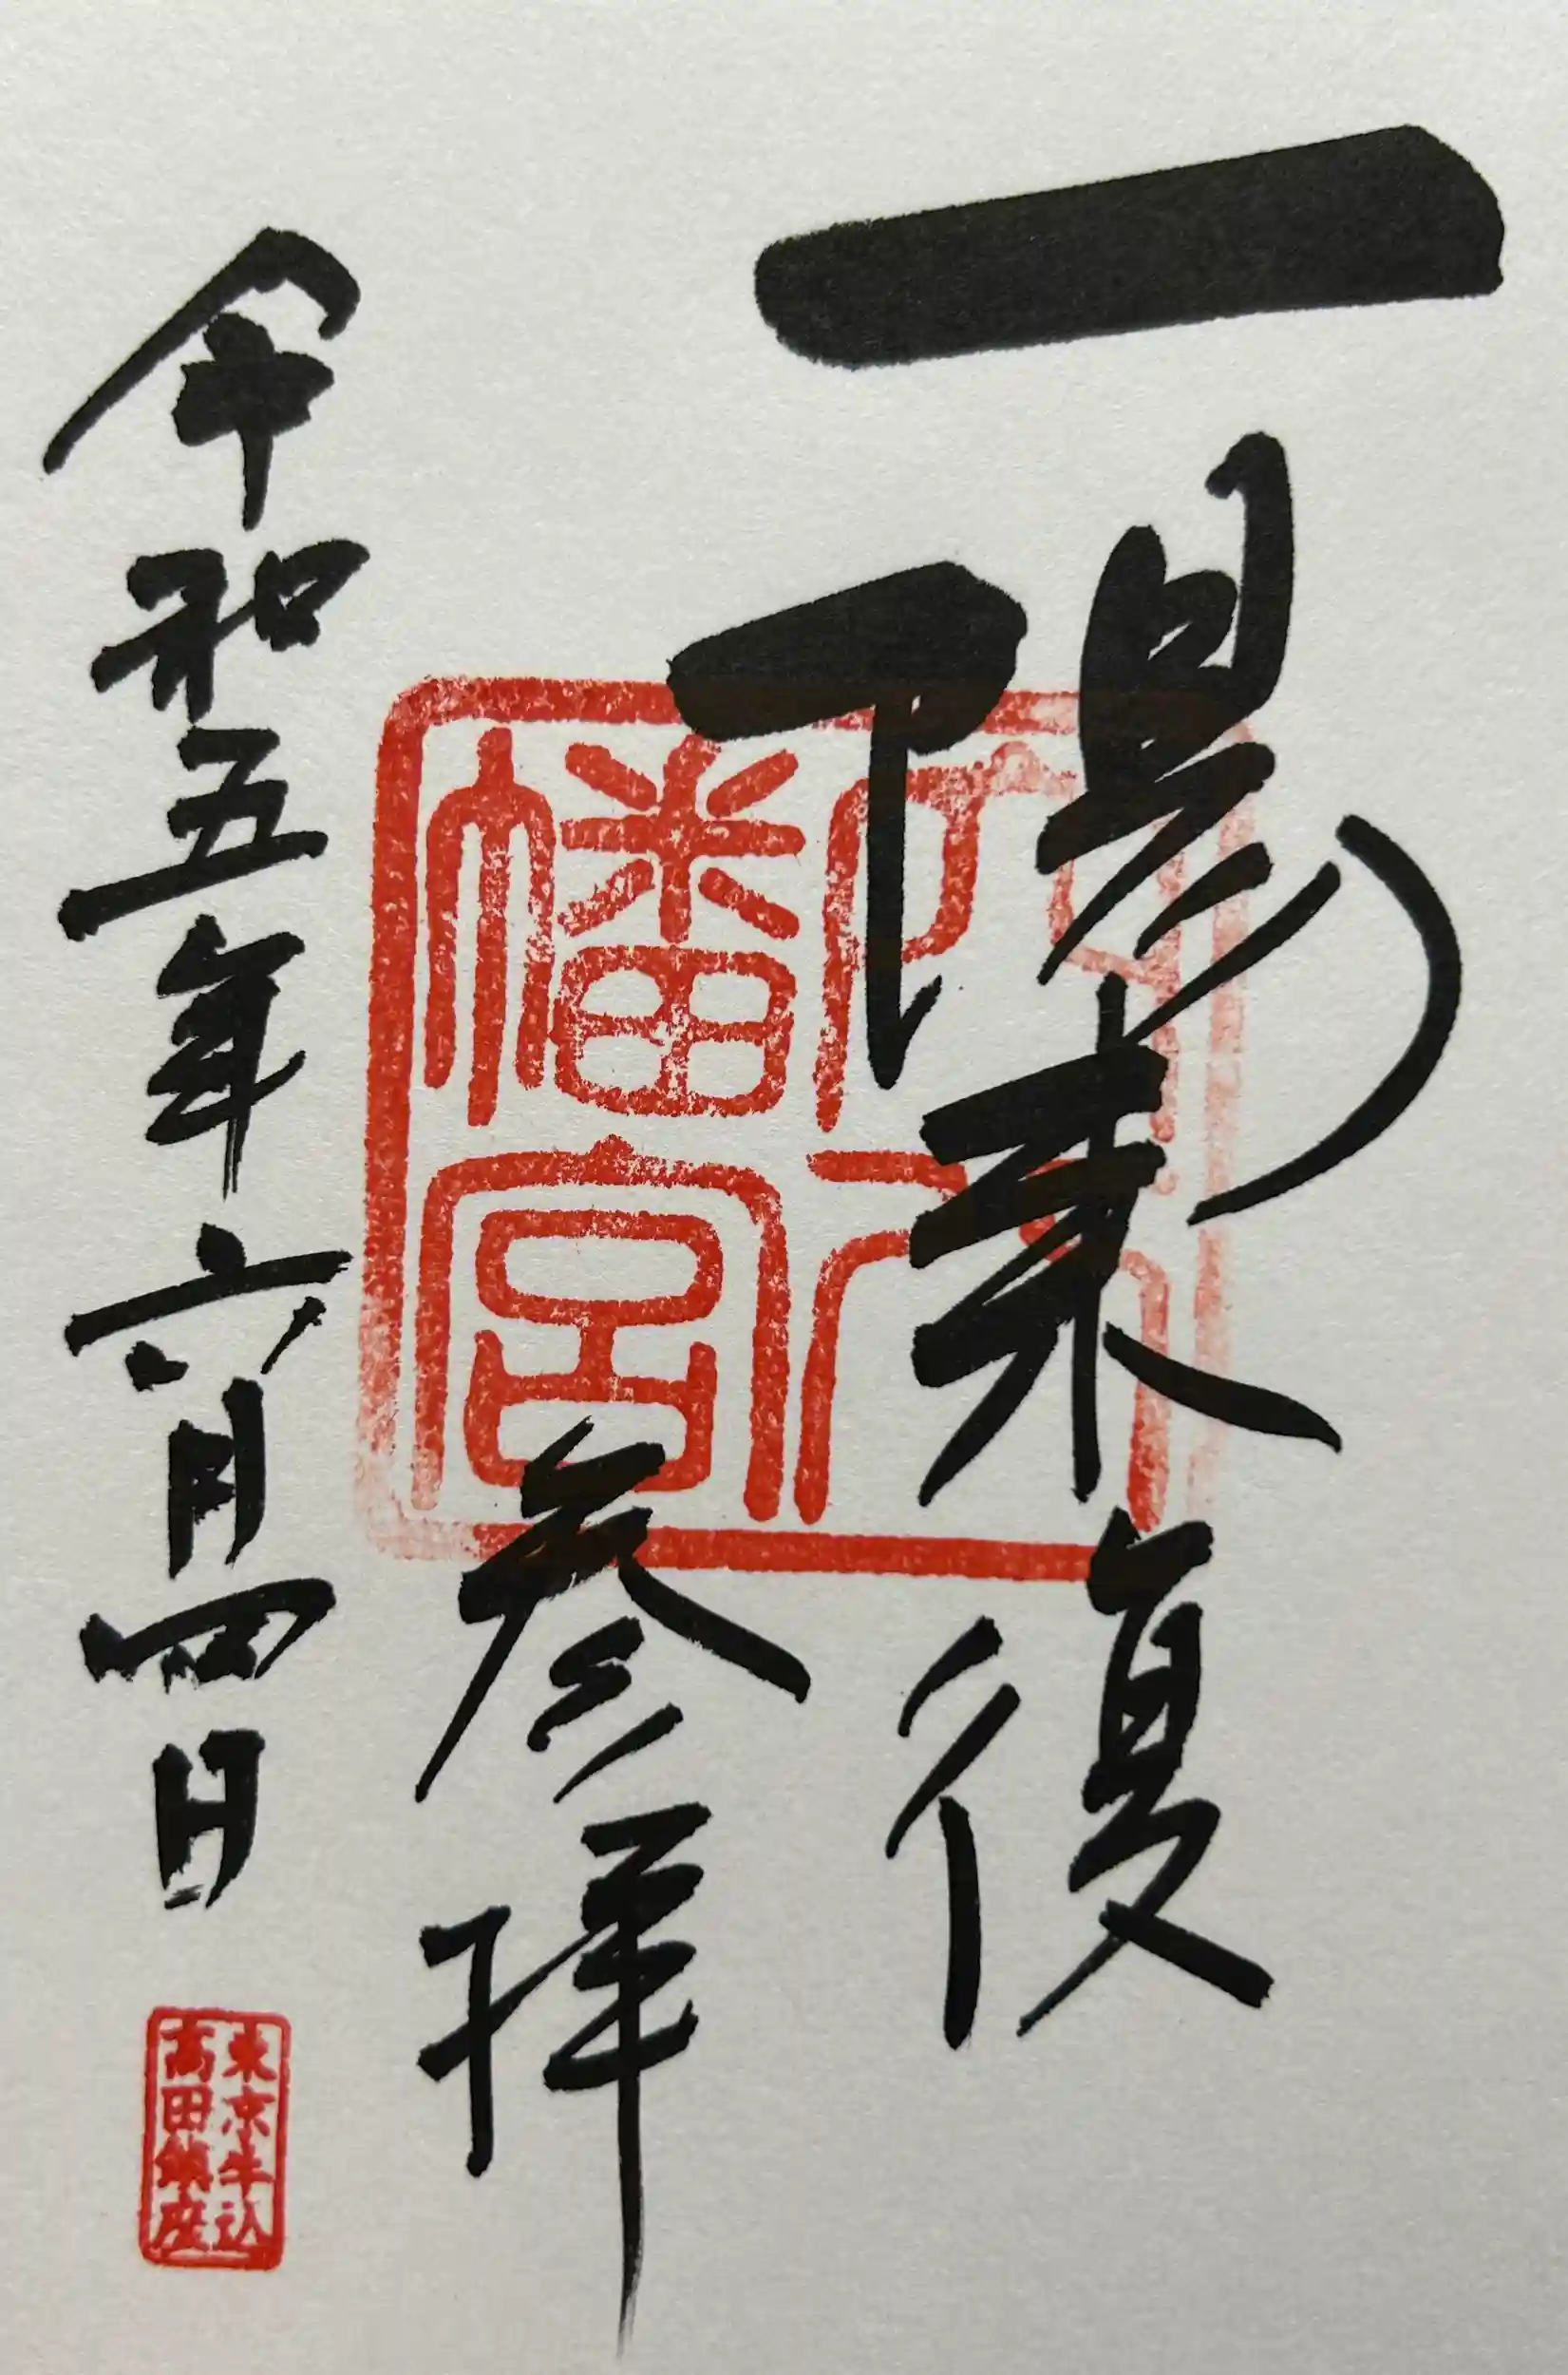 一陽来復
参拝
令和五年六月四日
穴八幡宮
東京牛込
高田鎮座